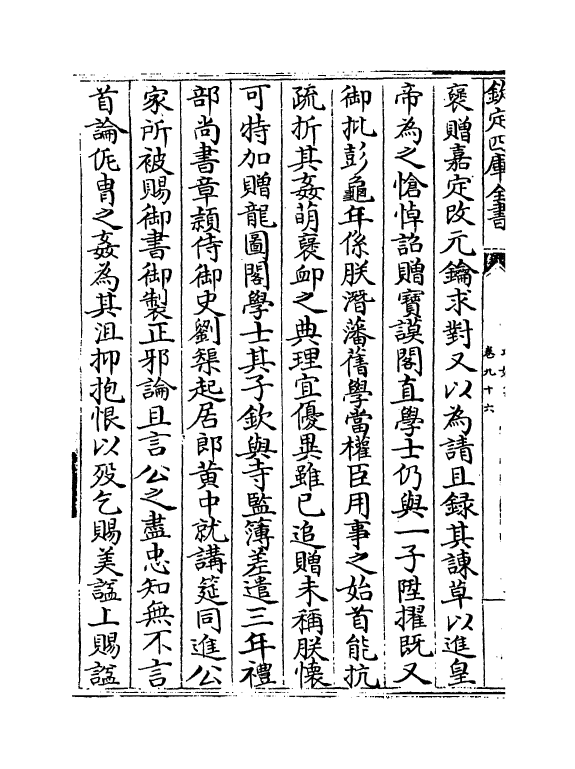 欽定四庫全書
卷九十六
褒贈嘉定改元鑰求對又以為請且録其諫草以進皇
帝為之愴悼詔贈寶謨閣直學士仍與一子陞擢既又
御批彭龜年係朕潛藩舊學當權臣用事之始首能抗
疏折其姦萌褒卹之典理宜優異雖已追贈未稱朕懷
可特加贈龍圖閣學士其子欽與寺監簿差遣三年禮
部尚書章頴侍御史劉榘起居郎黄中就講筵同進公
家所被賜御書御製正邪論且言公之盡忠知無不言
首論侂胄之姦為其沮抑抱恨以歿乞賜美諡上賜諡